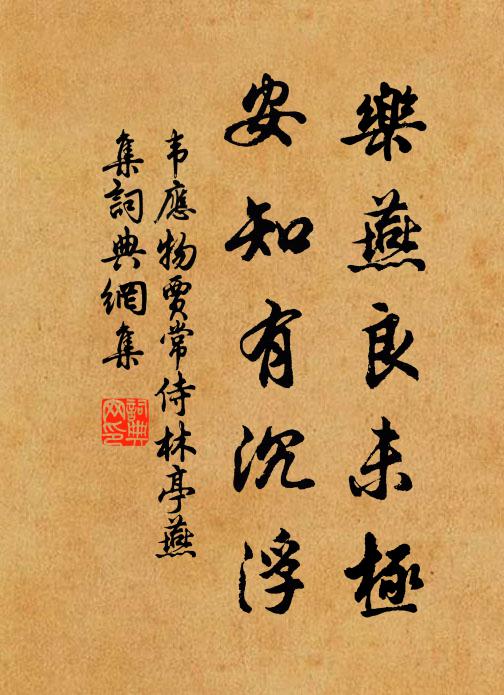 樂燕良未極
安知有沉浮
韦應物賈常侍林亭燕
集詞典網集
詞典
网印